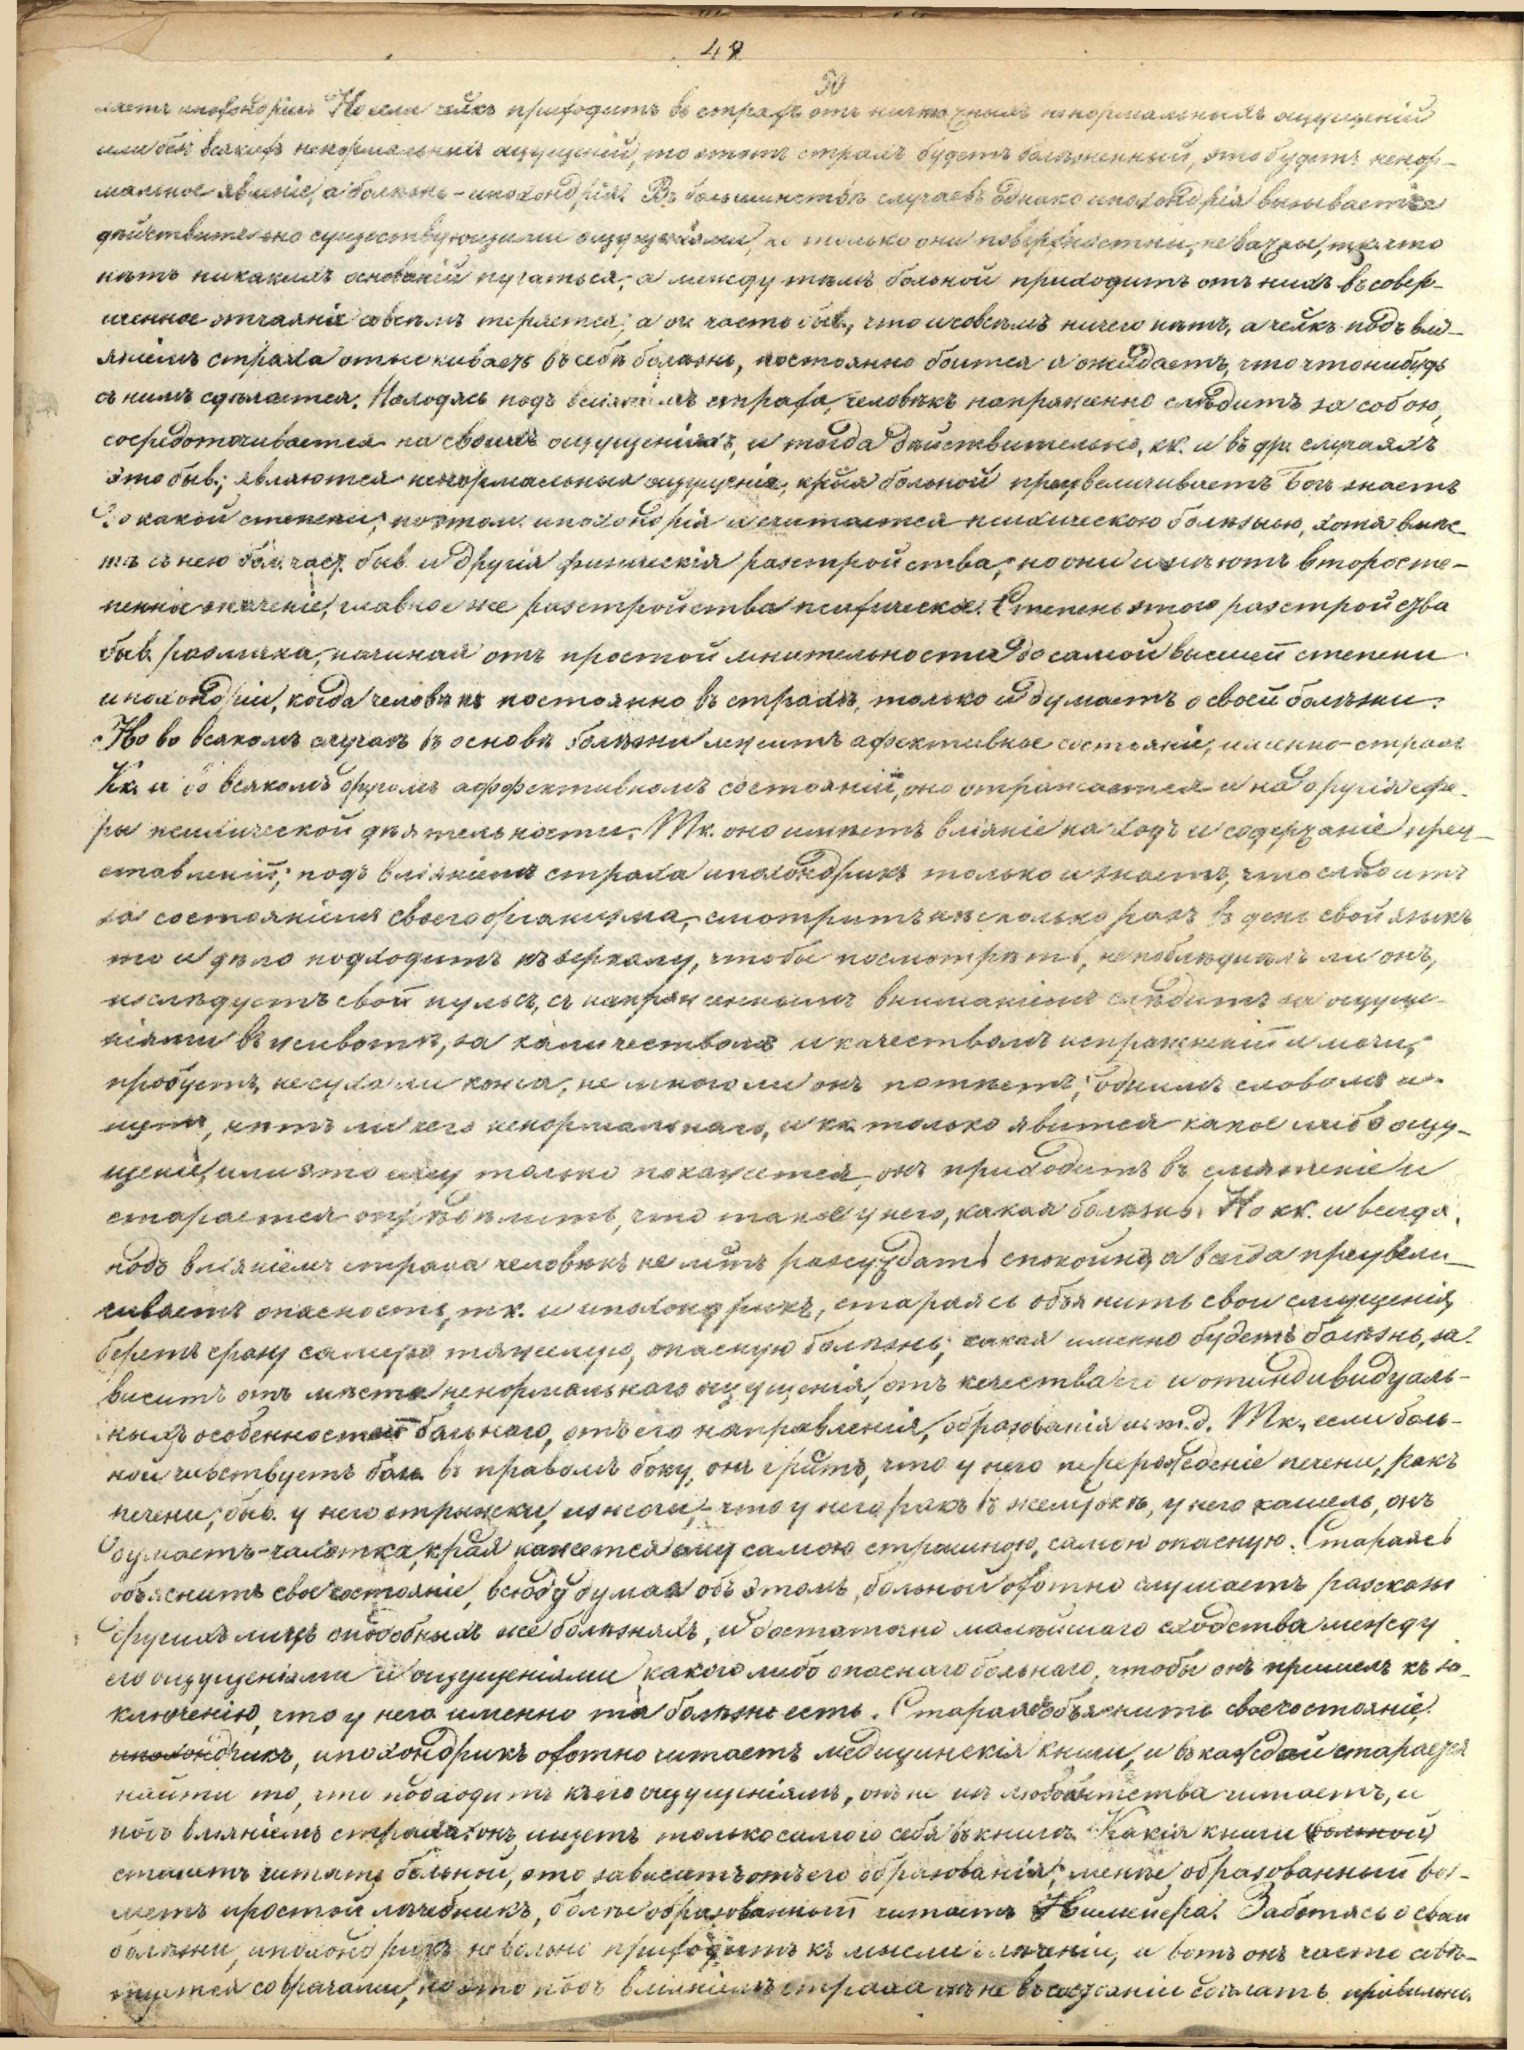 48
50
ипохондріи. Но если челкъ приходитъ въ страхъ отъ ничтожныхъ ненормальныхъ ощущеній
или безъ всякихъ ненормальныхъ ощущеній, то этотъ страхъ будетъ болѣзненный, это будетъ ненор-
мальное явленіе, а болѣзнь - ипохондрія. Въ большинствѣ случаевъ однако ипохондрія вызывается
дѣйствительно существующими ощущеніями, но только они поверхностны, не важны, тк. что
нѣтъ никакихъ основаній пугаться, а между тѣмъ больной приходитъ отъ нихъ въ совер-
шенное отчаяніе совсѣмъ теряется; а оч. часто быв., что и совсѣмъ ничего нѣтъ, а челкъ подъ влі-
яніемъ страха отыскиваетъ въ себѣ болѣзнь, постоянно боится и ожидаетъ, что что нибудь
съ нимъ сдѣлается. Находясь подъ вліяніемъ страха, человѣкъ напряженно слѣдитъ за собою,
сосредоточивается на своихъ ощущеніяхъ, и тогда дѣйствительно, кк. и въ др. случаяхъ
это быв., являются ненормальныя ощущенія, крыя больной преувеличиваетъ Богъ знаетъ
до какой степени; поэтом. ипохондрія и считается психическою болѣзнью, хотя вмѣс-
тѣ съ нею бол. част. быв. и другія физическія разстройства; но они имѣютъ второсте-
пенное значеніе, главное же разстройства психическое. Степень этого разстройства
быв. различна, начиная отъ простой мнительности до самой высшей степени
ипохондріи, когда человѣкъ постоянно въ страхѣ, только и думаетъ о своей болѣзни.
Но во всякомъ случаѣ въ основѣ болѣзни лежитъ афективное состояніе, именно - страхъ
Кк. и во всякомъ другомъ аффективномъ состояніи, оно отражается и на другія сфе-
ры психической дѣятельности. Тк. оно имѣетъ вліяніе на ходъ и содержаніе пред-
ставленій; подъ вліяніемъ страха ипохондрикъ только и знаетъ, что слѣдитъ
за состояніемъ своего организма, смотритъ нѣсколько разъ въ день свой языкъ
то и дѣло подходитъ къ зеркалу, чтобы посмотрѣть, не поблѣднѣлъ ли онъ,
изслѣдуетъ свой пульсъ, съ напряженнымъ вниманіемъ слѣдитъ за ощуще-
ніями въ животѣ, за количествомъ и качествомъ испражненій и мочи,
пробуетъ, не суха ли кожа, не много ли онъ потѣетъ; однимъ словомъ и-
щетъ, нѣтъ ли чего ненормальнаго, и кк. только явится какое либо ощу-
щеніе, или это ему только покажется, онъ приходитъ въ смятеніе и
старается опредѣлить, что такое у него, какая болѣзнь. Но кк. и всегда,
подъ вліяніемъ страха человѣкъ не мжтъ разсуждать спокойно, а всегда преувели-
чиваетъ опасность, тк. и ипохондрикъ, стараясь объяснить свои ощущенія,
беретъ сразу самую тяжелую, опасную болѣзнь; какая именно будетъ болѣзнь, за-
виситъ отъ мѣста ненормальнаго ощущенія, отъ качества его и отъ индивидуаль-
ныхъ особенностей больного, отъ его направленія, образованія и т.д. Тк., если боль-
ной чувствуетъ боль въ правомъ боку, онъ гритъ, что у него перерожденіе печени, ракъ
печени; быв. у него отрыжки, изжоги, - что у него ракъ въ желудкѣ, у него кашель, онъ
думаетъ - чахотка, края кажется ему самою страшною, самою опасную. Стараясь
объяснить свое состояніе, всюду думая объ этомъ, больной охотно слушаетъ разсказы
другихъ лицъ о подобныхъ же болѣзняхъ, и достаточно малѣйшаго сходства между
его ощущеніями и ощущеніями какого либо опаснаго больнаго, чтобы онъ пришелъ къ за-
ключенію, что у него именно та болѣзнь есть. Стараясь объяснить свое состояніе,
ипохондрикъ, ипохондрикъ охотно читаетъ медицинскія книги, и въ каждой старается
найти то, что подходитъ къ его ощущеніямъ, онъ не изъ любопытства читаетъ, и
подъ вліяніемъ страха онъ ищетъ только самого себя въ книгѣ. Какія книги больной
станетъ читать больной, это зависитъ отъ его образованія; менѣе образованный возь-
метъ простой лѣчебникъ, болѣе образованный читаетъ Нимейера. Заботясь о своей
болѣзни, ипохондрикъ невольно приходитъ къ мысли о лѣченіи, и вотъ онъ часто совѣ-
туется со врачами, но это подъ вліяніемъ страха онъ не въ состояніи сдѣлать правильн.